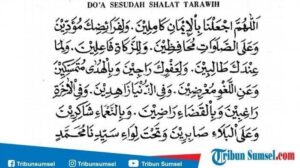 DO'A SESUDAH SHALAT TARAWIH
اَللّٰهُمَّ اجْعَلْنَا بِالْإِيْمَانِ كَامِلِيْنَ. وَلِفَرَائِضِكَ مُؤَدِّيْنَ
وَعَلَى الصَّلَوَاتِ مُحَافِظِيْنَ. وَلِلزَّكَاةِ فَاعِلِيْنَ. وَلِمَا
عِنْدَكَ طَالِبِيْنَ. وَلِعَفْوِكَ رَاجِيْنَ. وَبِالْهُدَى مُتَمَسِّكِيْنَ
وَعَنِ اللَّغْوِ مُعْرِضِيْنَ. وَفِى الدُّنْيَا زَاهِدِيْنَ. وَفِى الْآخِرَةِ
رَاغِبِيْنَ. وَبِالْقَضَاءِ رَاضِيْنَ. وَبِالنَّعْمَاءِ شَاكِرِيْنَ
وَعَلَى الْبَلَاءِ صَابِرِيْنَ. وَتَحْتَ لِوَاءِ سَيِّدِنَا مُحَمَّدٍ
Tribun Sumsel.com
Tribun Sumsel